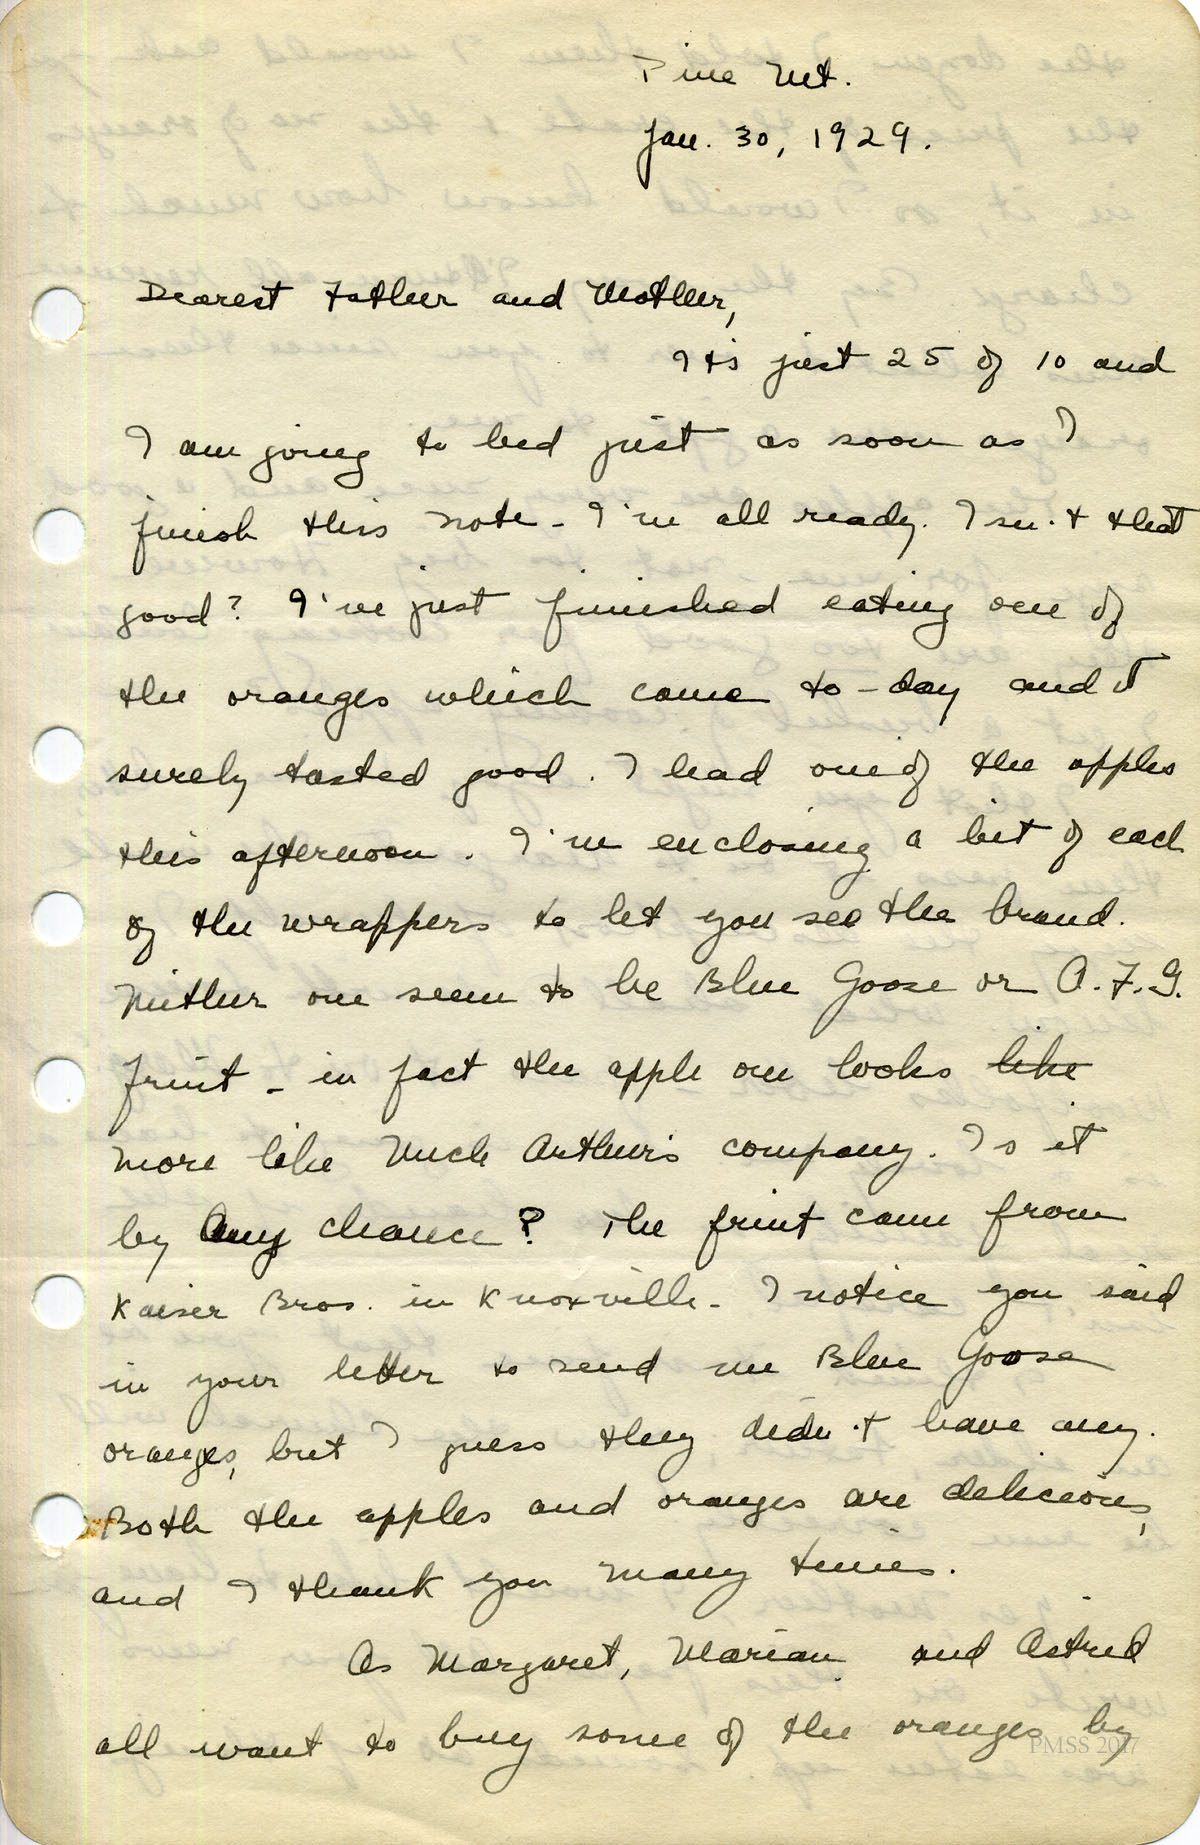 Pine Mt.
Jan. 30, 1929.
Dearest Father and Mother,
It's just 25 of 10 and
I am going to bed just as soon as I
finish this note - I'm all ready. Isn't that
good? I've just finished eating one of
the oranges which came to-day and it
surely tasted good. I had one of the apples
this afternoon. I'm enclosing a bit of each
of the wrappers to let you see the brand.
Neither one seem to be Blue Goose or A.F.G.
fruit - in fact the apple one looks like
more like Uncle Arthur's company. Is it
by any chance? The fruit came from
Kaiser Bros. in Knoxville. I notice you said
in your letter to send me Blue Goose
oranges, but I guess they didn't have any.
Both the apples and oranges are delicious,
and I thank you many times.
As Margaret, Marian and Astrid
all want to buy some of the oranges by
PMSS 2017